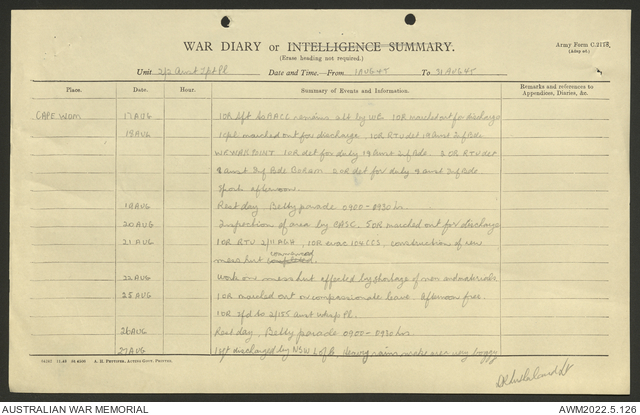 WAR DIARY or INTELLIGENCE SUMMARY.
(Erase heading not required.)
Army Form C.2118.
Unit 2/2 Aust Tpt Pl Date and Time—From 1 AUG 45 To 31 AUG 45
Place. Date. Hour. Summary of Events and Information. Remarks and references to Appendices, Diaries, &c.
CAPE WOM 17 AUG 1 OR marched out for discharge
18 AUG 1 Cpl marched out for discharge. 1 OR RTU det 19 Aust Inf Bde
1 OR det for duly 19 Aust Inf Bde. 2 OR RTU det
8 Aust Inf Bde BORAM 2 OR det for duly 8 Aust Inf Bde
Sports afternoon.
19 AUG Rest day. Betty parade 0900 - 0930 hrs.
20 AUG Inspection of area by CASC. 5 OR marched out for discharge
21 AUG 1 OR RTU 2/11 AGH, 1 OR evac 104 CCS, construction of new
mess hut commenced
22 AUG Work on mess hut affected by shortage of men and materials
25 AUG 1 OR marched out on compassionate leave. Afternoon free.
1 OR tfd to 2/155 Aust Pl.
26 AUG Rest day. Betty parade 0900 - 0930 hrs.
27 AUG discharged by NSW L of C. Heavy rains make area very boggy
A. H. PETTIFER, ACTING GOVT. PRINTER.
AUSTRALIAN WAR MEMORIAL
AWM2022.5.126